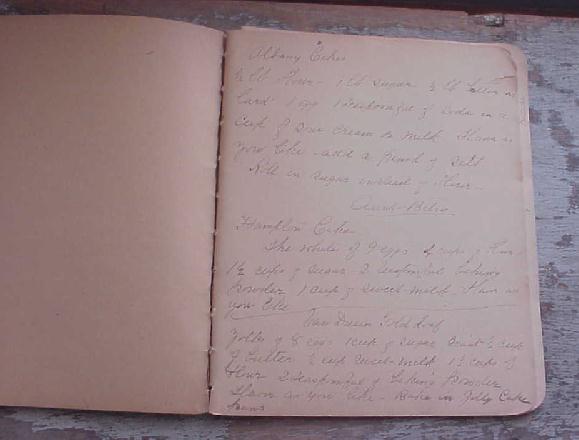 Albany Cakes
½ lb flour - 1 lb sugar ½ lb butter or
lard 1 egg 1 teaspoonful of soda in a
cup of sour cream or milk Flavor as
you like - add a pinch of salt
Roll in sugar instead of flour -
Aunt
Hampton Cake
The white of 9 eggs 4 cups of flour
1½ cups of sugar 2 teaspoonful baking
Powder 1 cup of sweet milk Flavor as
you like
Gold Loaf
Yolks of 8 eggs 1 cup of sugar ½ cup
of butter ½ cup sweet milk 1½ cups of
flour 2 teaspoonful of baking Powder
Flavor as you like - Bake in Jelly Cake
pans